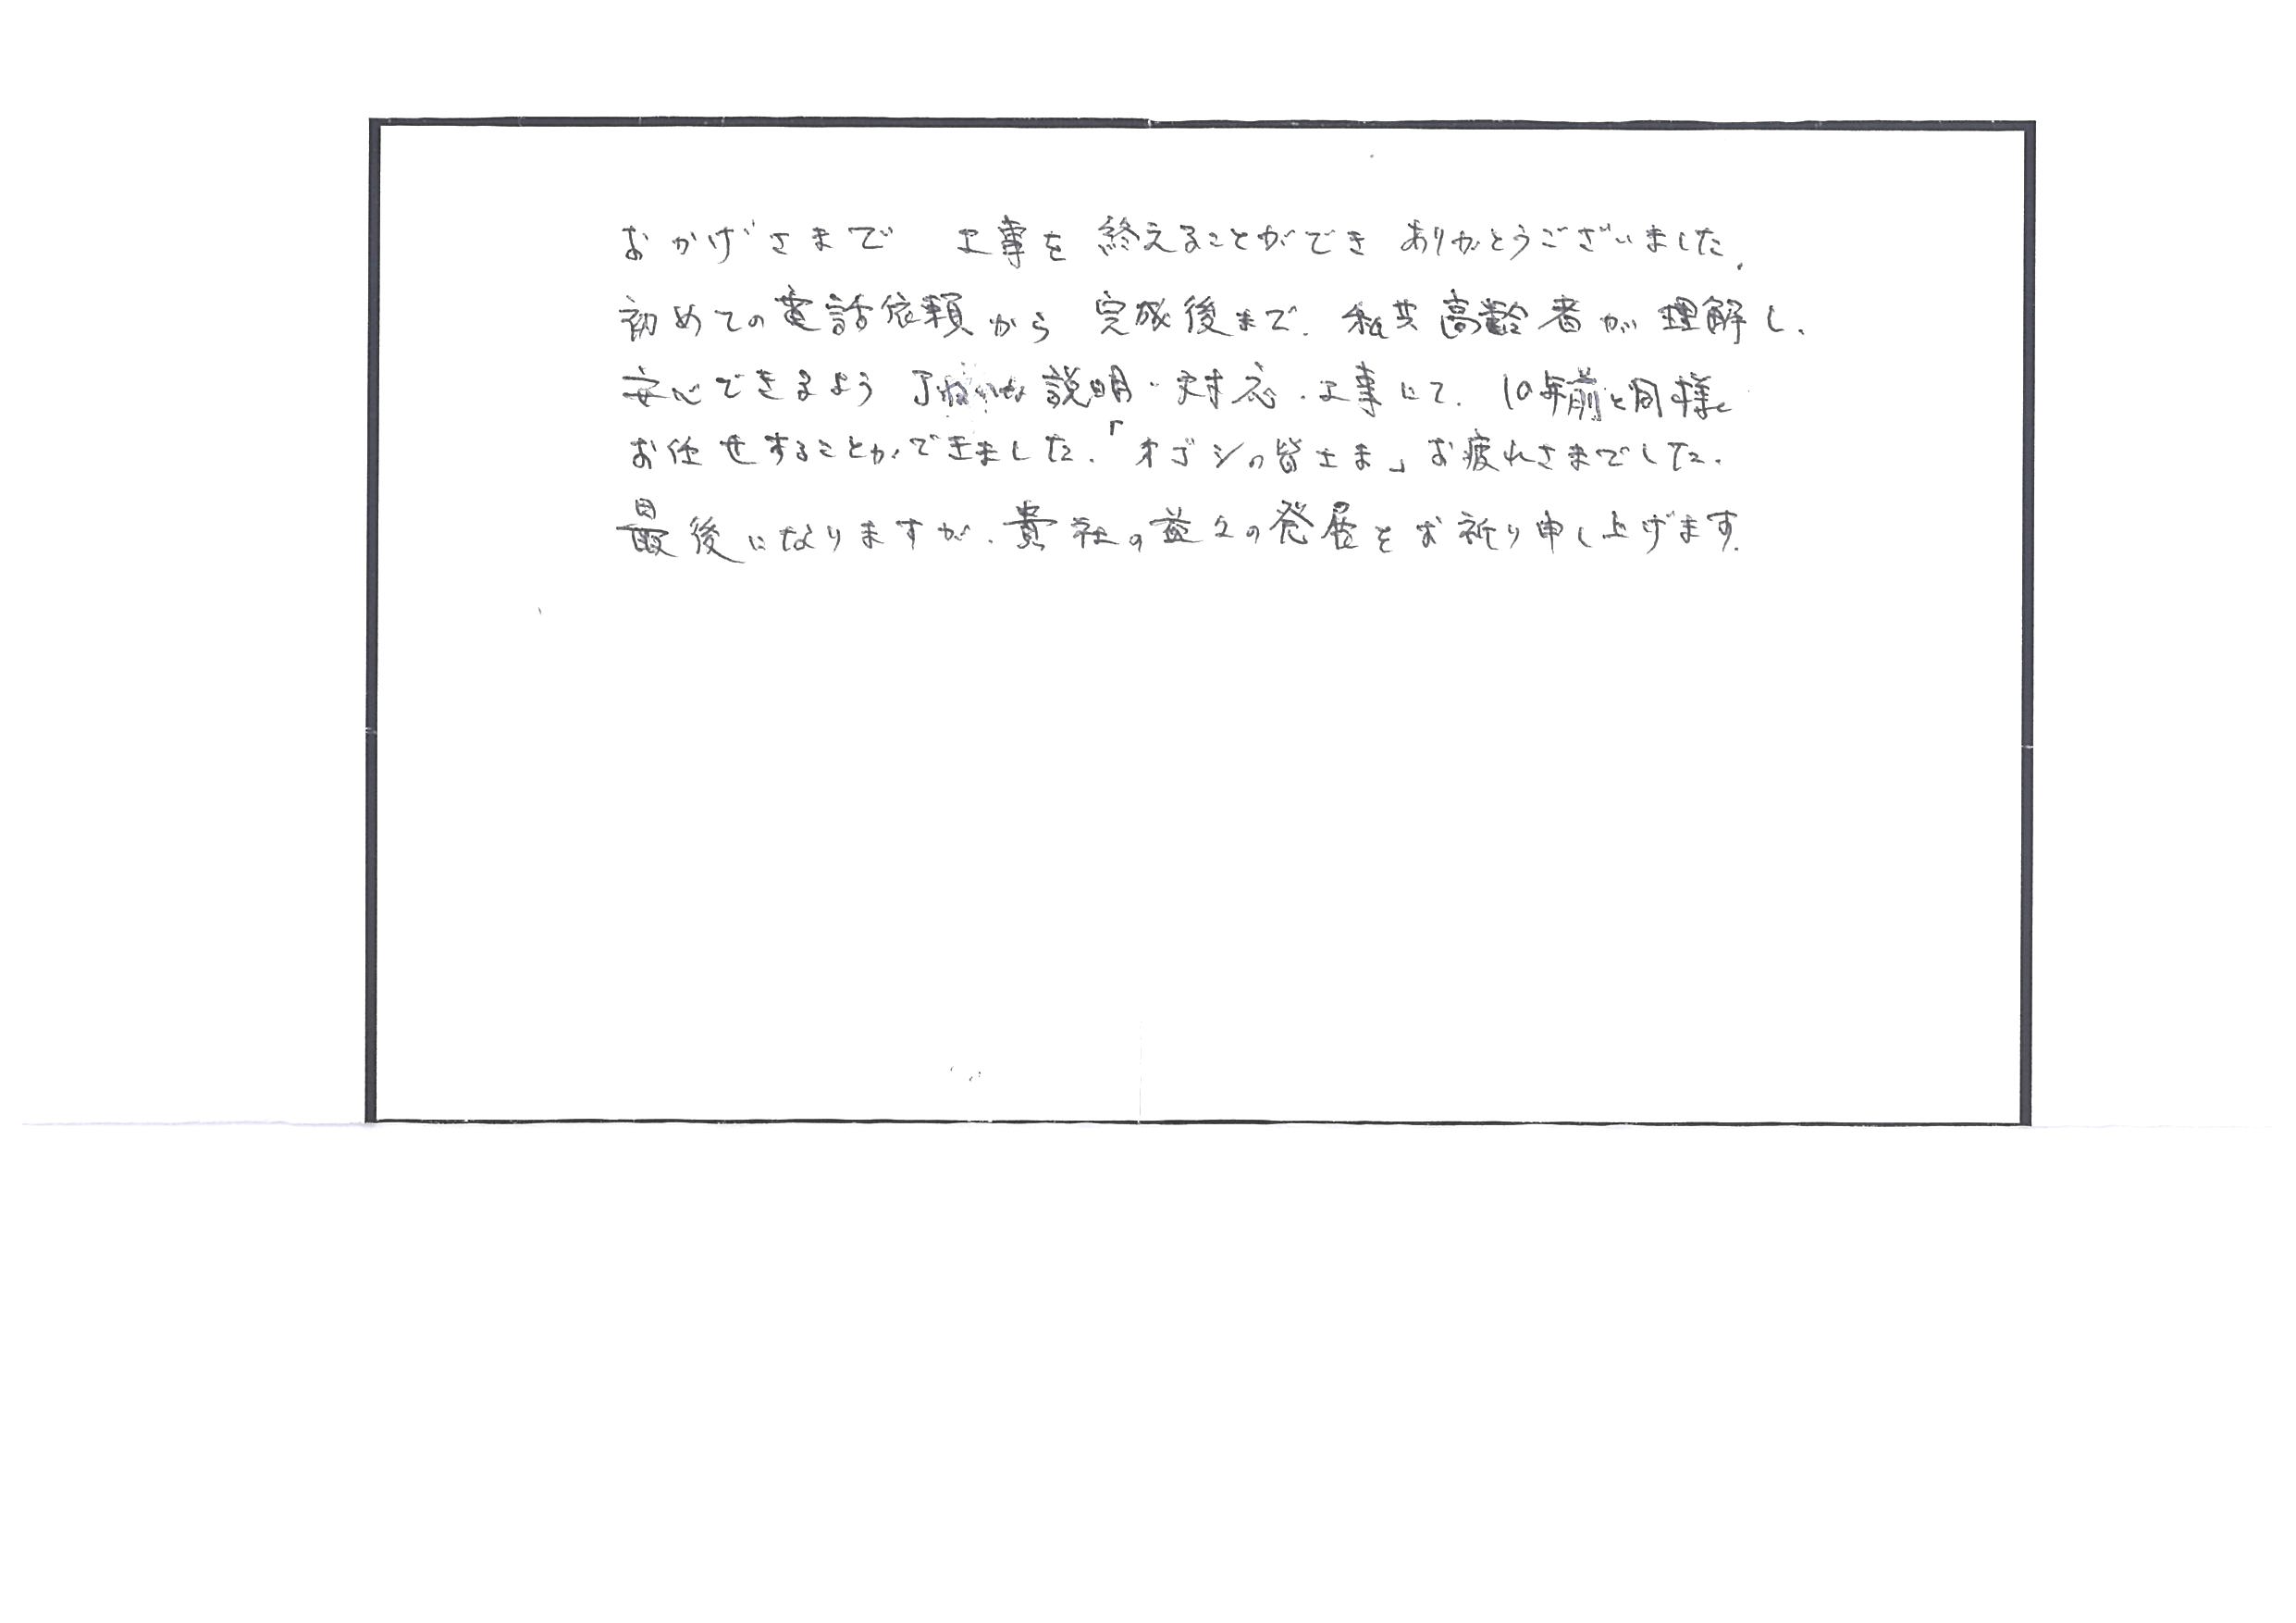 おかげさまで 工事を 終えることができ ありがとうございました.
初めての電話依頼から 完成後まで. 私共高齢者が理解し.
安心できるよう ていねいな説明・対応・工事にて. 10年前と同様
お任せすることができました.「オゴシの皆さま」お疲れさまでした.
最後になりますが. 貴社の益々の発展をお祈り申し上げます.